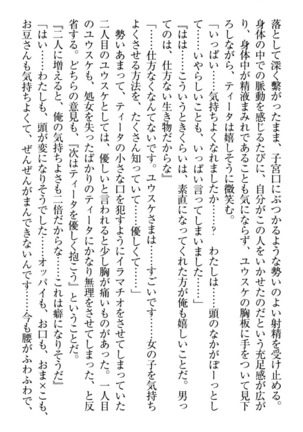 落として深く繋がったまま、子宮口にぶつかるような勢いのよい射精を受け止める。
身体の中での脈動を感じるたびに、自分がこの人をいかせたのだという充足感が広が
り、身体中が精液まみれであることも気にならず、ユウスケの胸板に手をついて見下
ろしながら、ティータは嬉しそうに微笑む。
「いっぱい……気持ちよくなれましたか……？　わたしは……頭のなかがぼーっとし
て……いやらしいことも、いっぱい言ってしまいました……」
『はは……こういうときくらいは、素直になってくれた方が俺も嬉しいことだ。男っ
てのは、仕方ない生き物だからな』
「……仕方なくなんてないです……ユウスケさまは……すごいです……女の子を気持ち
よくさせる方法を、たくさん知っていて……優しくて……」
　勢いあまって、ティータの小さな口を犯すようにイラマチオをさせてしまっていた
二人目のユウスケとしては、優しいと言われると少し胸が痛いものがあった。一人目
のユウスケも、処女を失ったばかりのティータにかなり無理をさせてしまった、と反
省する。どちらの意見も、「次はティータを優しく抱こう」ということだ。
『二人に増えると、俺の気持ちよさも二倍だからな……これは癖になりそうだ』
「はい……わたしも、頭が変になりそうでした……オッパイも、お口も、おま×こも、
お豆さんも気持ちよくて、ぜんぜんがまんできないんです……今も腰がふわふわで、